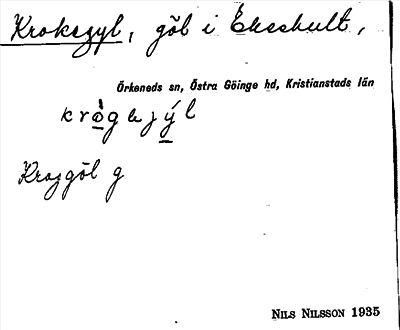 Kroksgyl, göl i Ekeshult,
Örkeneds sn, Östra Göinge hd, Kristianstads län
göl g
NILS NILSSON 1935